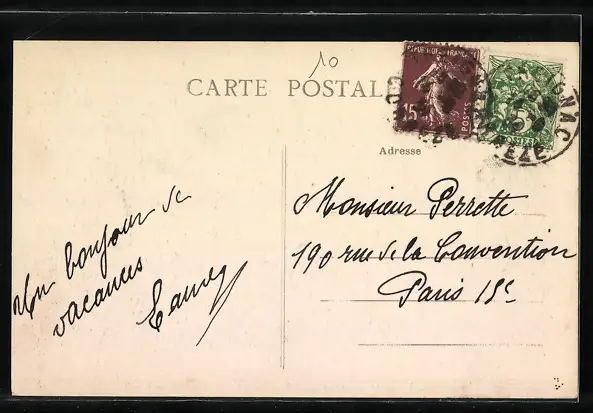 10
CARTE POSTALE
REPUBLIQUE FRANÇAISE
15
POSTES
5
POSTES
CORREZE
Adresse
Monsieur Perrette
190 rue de la Convention
Paris 15e
Un bonjour de
vacances